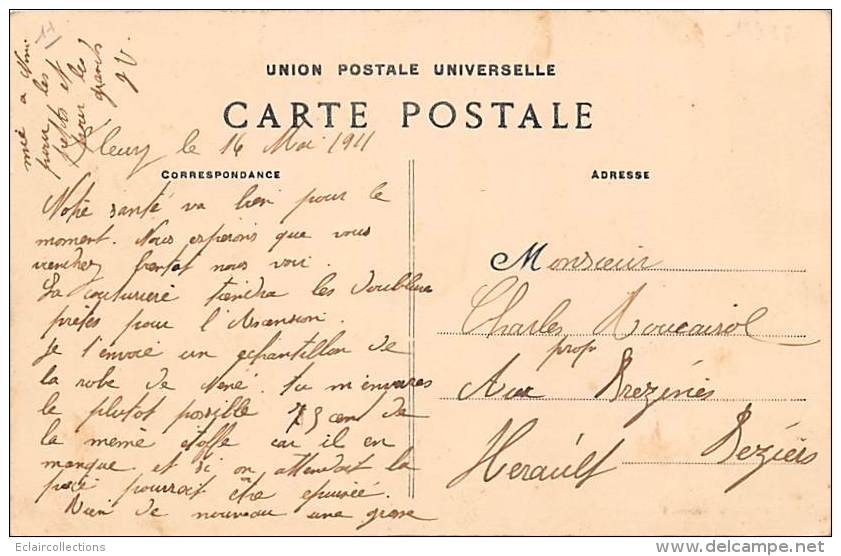 mie a Mimi
pour les
petits et
pour les
grands
J V.
UNION POSTALE UNIVERSELLE
CARTE POSTALE
Fleury le 16 Mai 1911
CORRESPONDANCE
ADRESSE
Notre santé va bien pour le
moment. Nous esperons que vous
viendrez bientot nous voir.
La couturiere tiendra les doublure
prêtes pour l'Ascension.
Je t'envoie un echantillon de
la robe de René. tu m'enverras
le plutot possible 75 cen de
la meme étoffe car il en
manque. et si on attendait la
pièce pourrait être épuisée.
Rien de nouveau une grosse
Monsieur
Charles Roucairol
prop
Aux Brezines
Beziers
Herault
Eclaircollections
www.delcampe.net